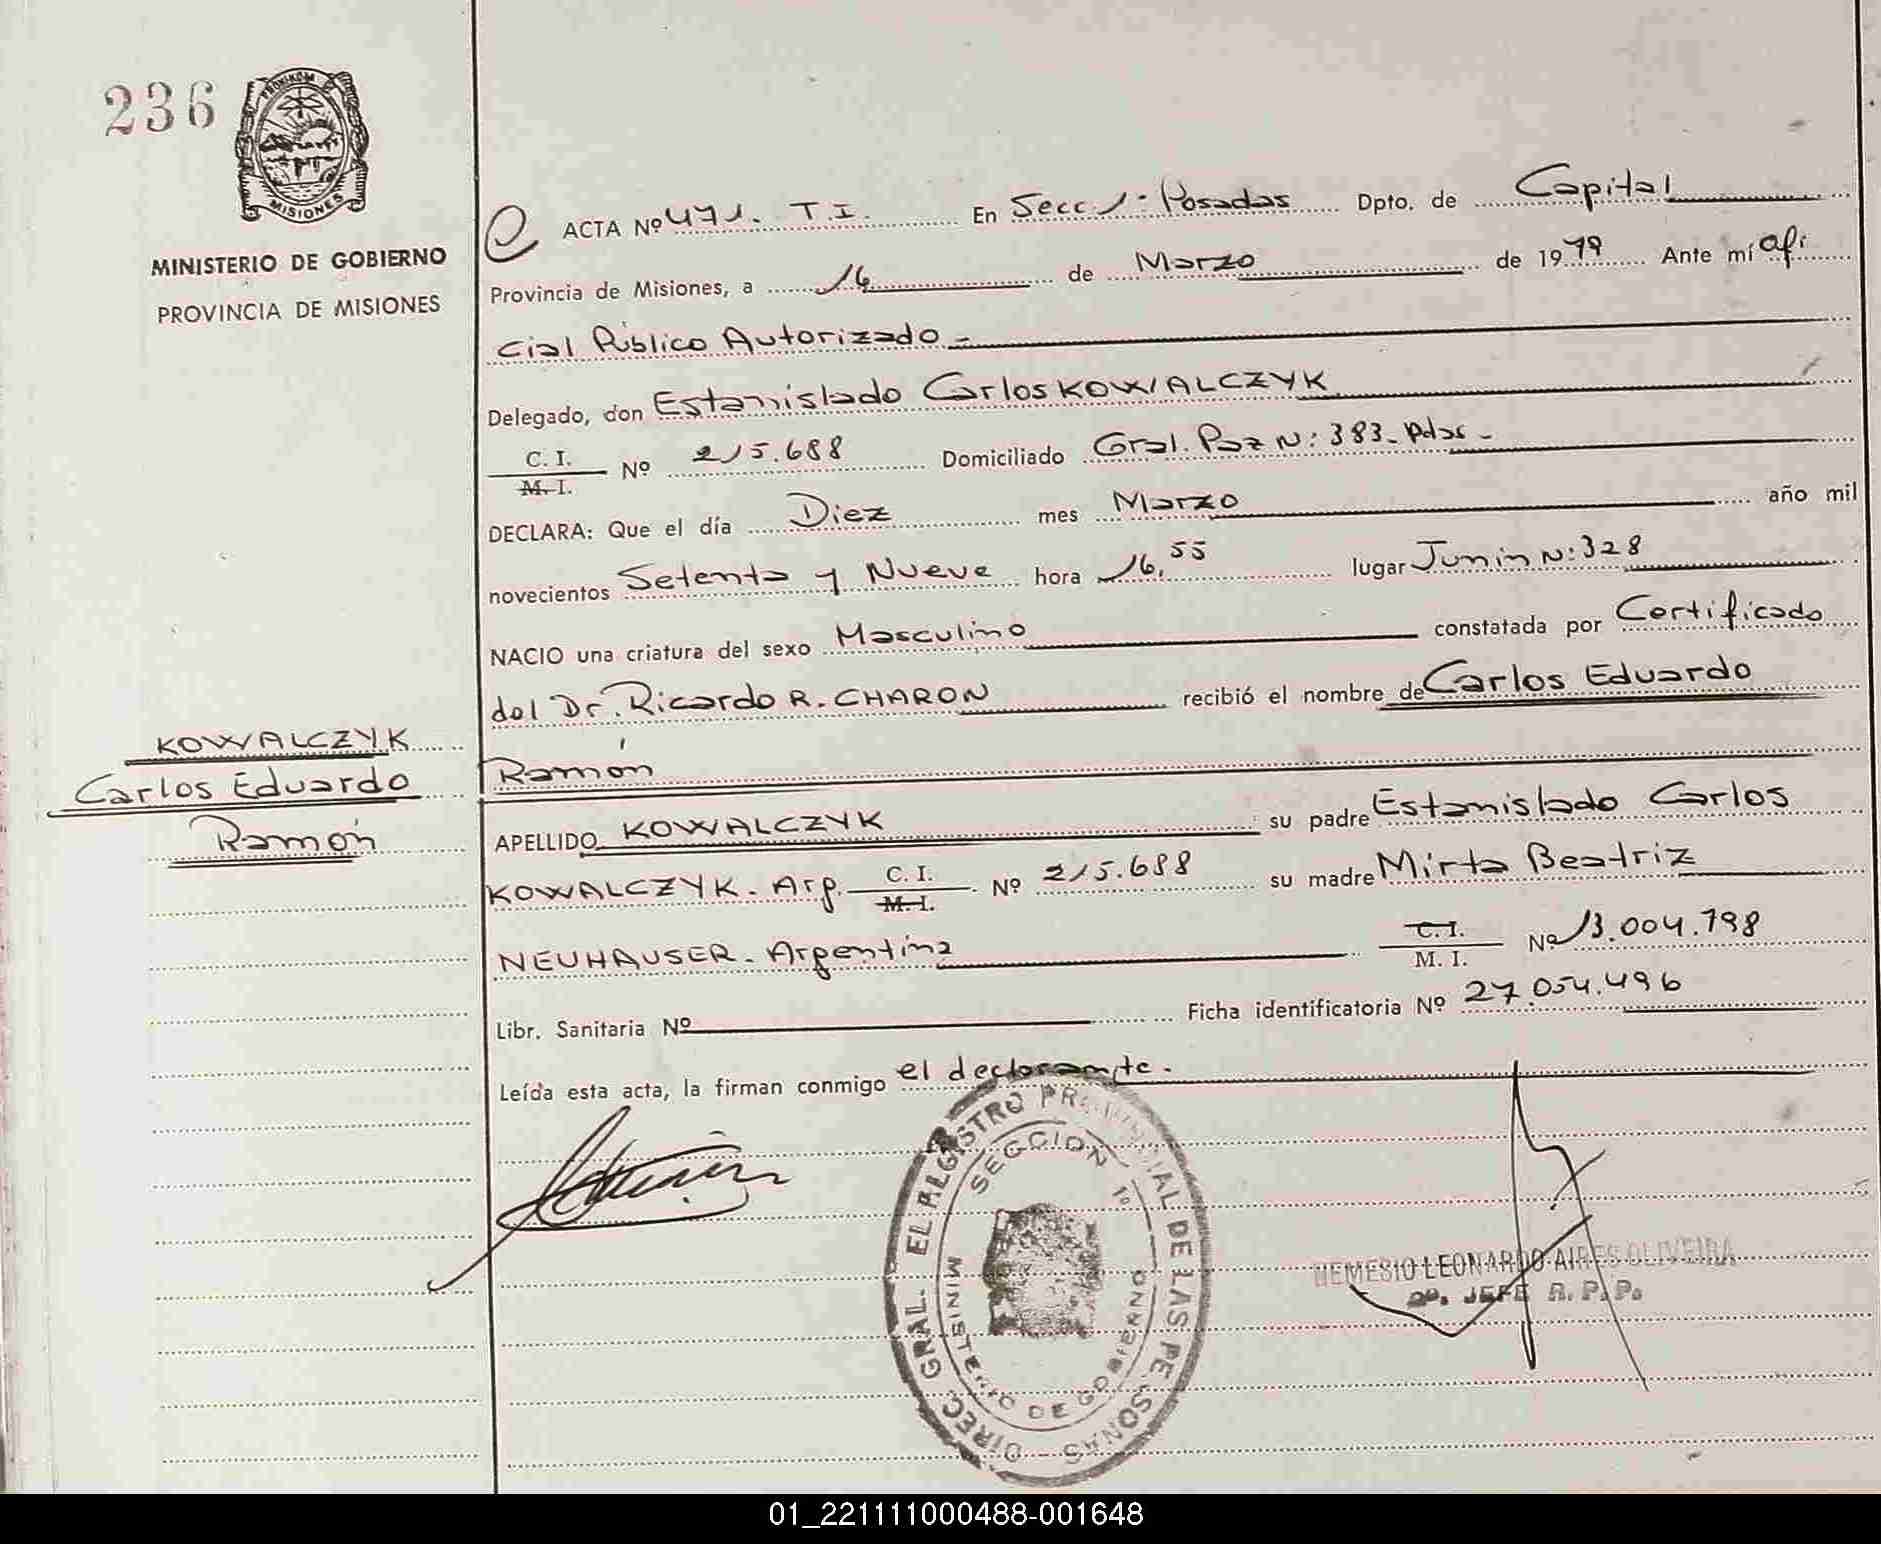 236
PROVINCIA
MISIONES
MINISTERIO DE GOBIERNO
PROVINCIA DE MISIONES
ACTA Nº 471. T.I. En Secc 1ª Posadas Dpto. de Capital
Provincia de Misiones, a 16 de Marzo de 1979 Ante mí ofi
cial Público Autorizado -
Delegado, don Estanislado Carlos KOWALCZYK
C. I.
M. I. Nº 215.688 Domiciliado Gral. Paz N: 383- Pdas -
DECLARA: Que el día Diez mes Marzo año mil
novecientos Setenta y Nueve hora 16,55 lugar Junin N: 328
NACIO una criatura del sexo Masculino constatada por Certificado
del Dr. Ricardo R. CHARON recibió el nombre de Carlos Eduardo
Ramón
KOWALCZYK
Carlos Eduardo
Ramón
APELLIDO KOWALCZYK su padre Estanislado Carlos
KOWALCZYK - Arg. C. I. M. I. Nº 215.688 su madre Mirta Beatriz
NEUHAUSER - Argentina C. I. M. I. Nº 13.004.798
Libr. Sanitaria Nº Ficha identificatoria Nº 27.054.496
Leída esta acta, la firman conmigo el declarante.
DIREC. GRAL. DE LAS PERSONAS
SECCION 1º
MINISTERIO DE GOBIERNO
NEMESIO LEONARDO AIRES OLIVEIRA
JEFE R. P. P.
01_221111000488-001648